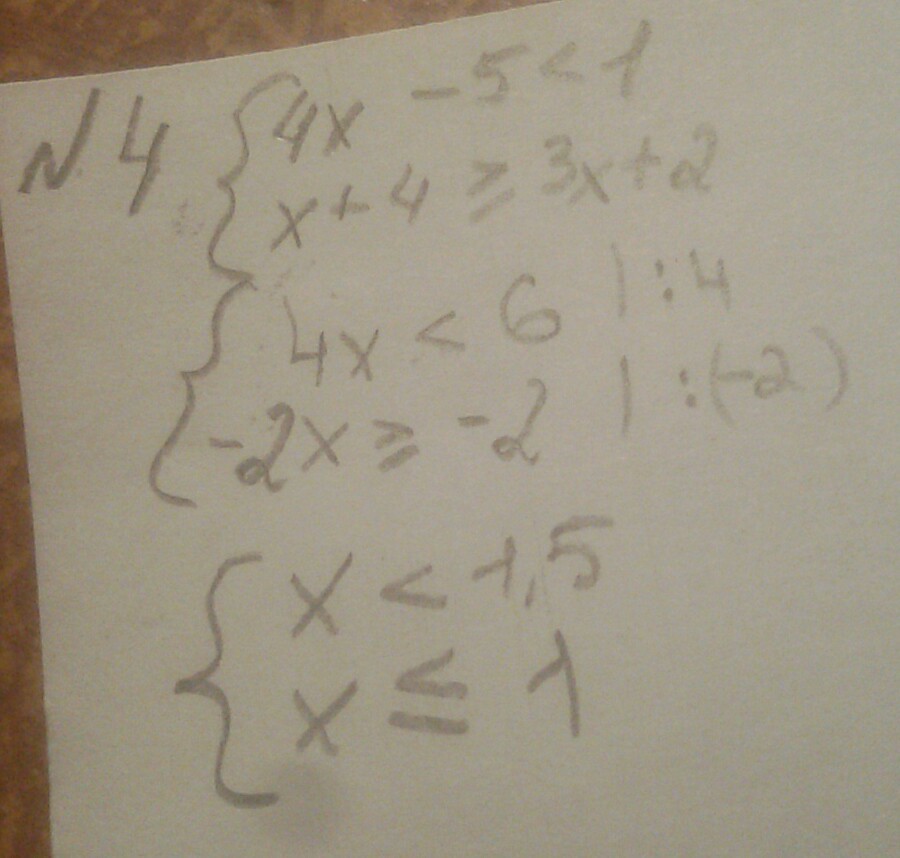 N 4 { 4x - 5 < 1
x + 4 ≥ 3x + 2
{ 4x < 6 | : 4
-2x ≥ -2 | : (-2)
{ x < 1,5
x ≤ 1